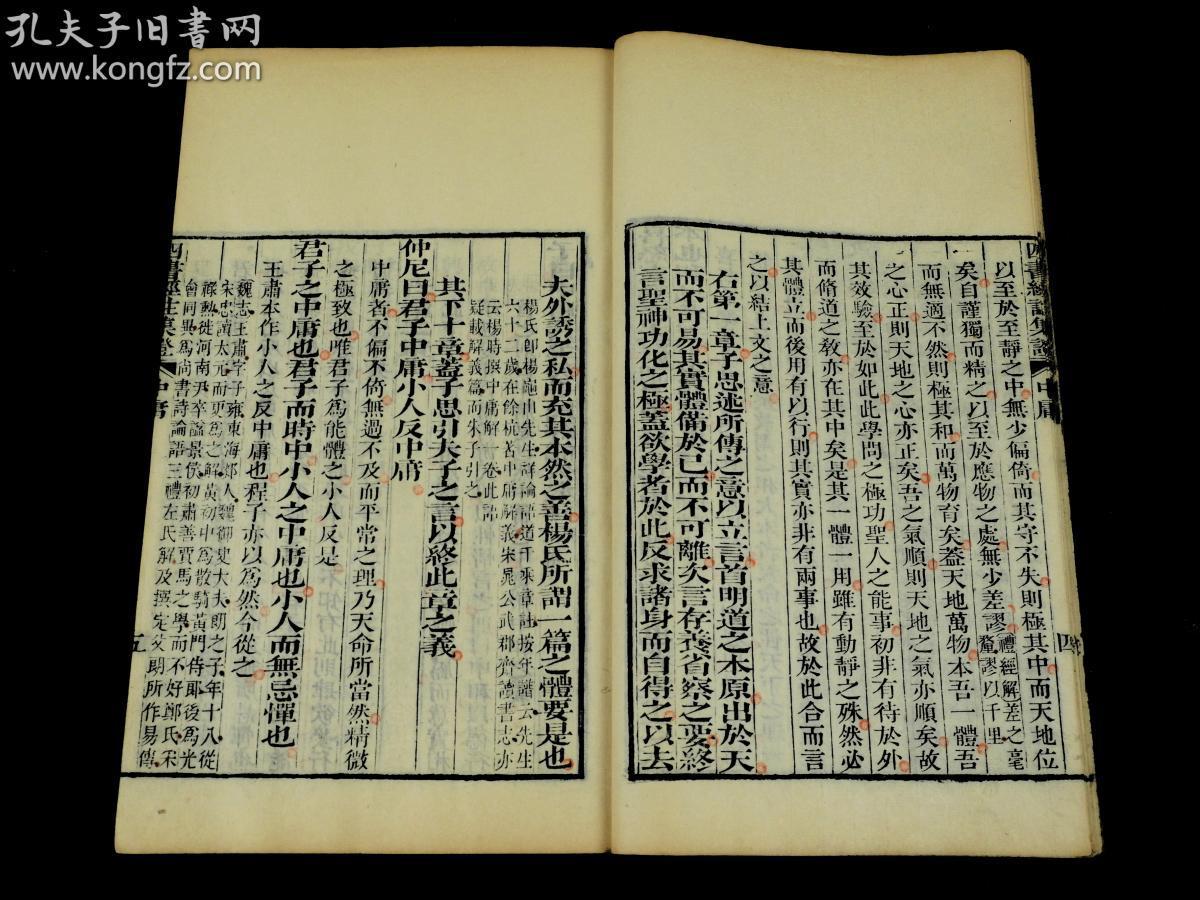 孔夫子旧书网
www.kongfz.com
四書經註集證
中庸
四
以至於至靜之中無少偏倚而其守不失則極其中而天地位
矣自謹獨而精之以至於應物之處無少差謬禮經解差之毫釐謬以千里
而無適不然則極其和而萬物育矣蓋天地萬物本吾一體吾
之心正則天地之心亦正矣吾之氣順則天地之氣亦順矣故
其效驗至於如此此學問之極功聖人之能事初非有待於外
而脩道之教亦在其中矣是其一體一用雖有動靜之殊然必
其體立而後用有以行則其實亦非有兩事也故於此合而言
之以結上文之意
右第一章子思述所傳之意以立言首明道之本原出於天
而不可易其實體備於己而不可離次言存養省察之要終
言聖神功化之極蓋欲學者於此反求諸身而自得之以去
夫外誘之私而充其本然之善楊氏所謂一篇之體要是也
楊氏卽楊龜山先生詳論語道千乘章註按年譜云先生
六十二歲在餘杭著中庸解義宋晁公武郡齋讀書志亦
云楊時撰中庸解一卷此語
疑載解義篇而朱子引之
其下十章蓋子思引夫子之言以終此章之義
仲尼曰君子中庸小人反中庸
中庸者不偏不倚無過不及而平常之理乃天命所當然精微
之極致也唯君子爲能體之小人反是
君子之中庸也君子而時中小人之中庸也小人而無忌憚也
王肅本作小人之反中庸也程子亦以爲然今從之
魏志王肅字子雍東海郯人魏御史大夫朗之子年十八從
宋忠讀太元而更爲之解黃初中爲散騎黃門侍郎後爲光
祿勲徙河南尹卒謚景侯初肅善賈馬之學而不好鄭氏采
會同異爲尚書詩論語三禮左氏解及撰定父朗所作易傳
四書經註集證
中庸
五